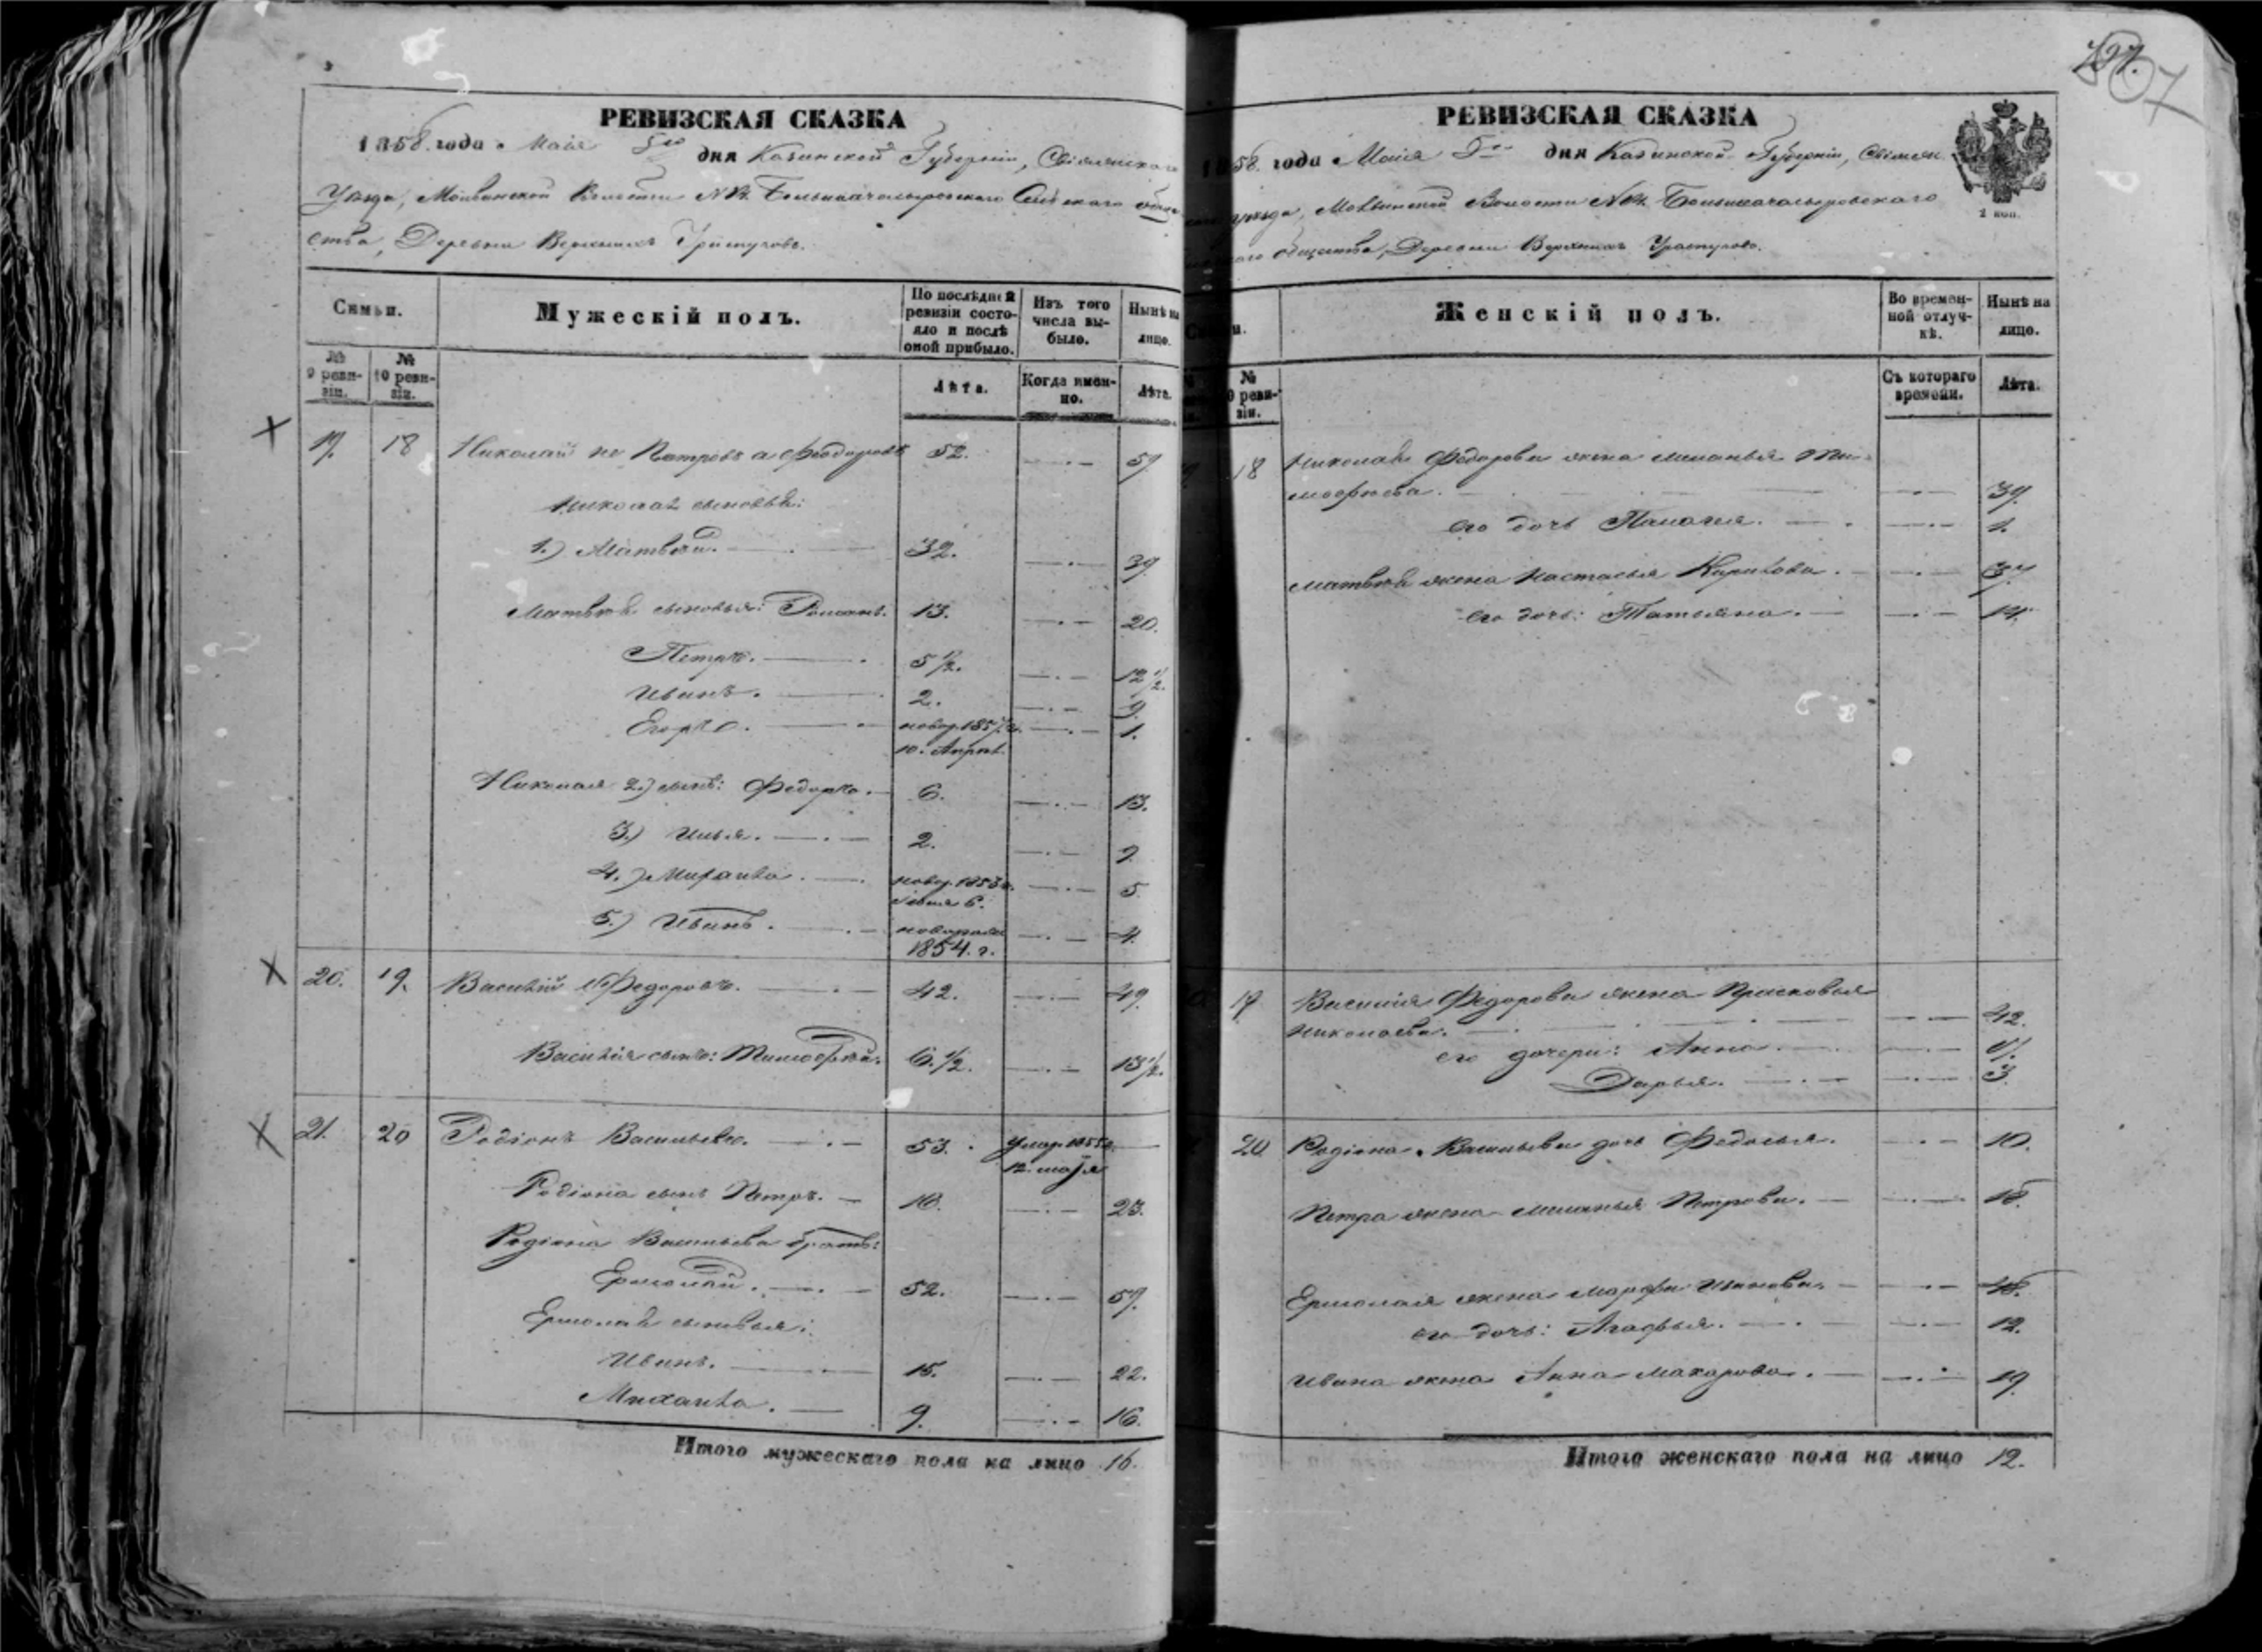 507
РЕВИЗСКАЯ СКАЗКА
1858 года Маія 5го дня Казанской Губерніи, Свіяжскаго
Уѣзда, Волости № Сельскаго обще
ства, Деревни Верхнихъ
Семьи.
Мужескій полъ.
По послѣдней ревизіи состояло и послѣ оной прибыло.
Изъ того числа выбыло.
Нынѣ на лицо.
№ 9 ревизіи.
№ 10 ревизіи.
Лѣта.
Когда именно.
Лѣта.
19. 18 Николай не Петровъ а Феодоровъ 52. 59
Николая сыновья:
1.) Матвѣй. 32. 39
Матвѣя сыновья: Романъ. 13. 20.
Петръ. 5 1/2. 12 1/2.
Иванъ. 2. 9.
Егоръ. новор. 1857 г. 1.
10. Апрѣл.
Николая 2.) сынъ: Федоръ. 6. 13.
3.) Илья. 2. 9
4.) Михаила. новор. 1853 г. 5.
6.
5.) Иванъ. новорожд 4.
1854. г.
20. 19. Василій Федоровъ. 42. 49.
Василія сынъ: Тимофѣй. 6. 1/2. 13 1/2.
21. 20 Родіонъ Васильевъ. 53. Умер. 1855 г.
12. маія
Родіона сынъ Петръ. 16. 23.
Родіона Васильева братъ:
Ермолай. 52. 59.
Ермолая сыновья:
Иванъ. 15. 22.
Михаила. 9. 16.
Итого мужескаго пола на лицо 16.
РЕВИЗСКАЯ СКАЗКА
1858. года Маія 5го дня Казанской Губерніи, Свіяж
скаго уѣзда, Волости №
скаго общества, Деревни Верхнихъ
2 коп.
Женскій полъ.
Во временной отлучкѣ.
Нынѣ на лицо.
№ 10 ревизіи.
Съ котораго времени.
Лѣта.
18 Николая Федорова жена Меланья Ти-
мофѣева. 39.
его дочь Пелагея. 1.
Матвѣя жена Настасья Кирилова. 37.
его дочь: Татьяна. 14.
19 Василія Федорова жена Прасковья
Николаева. 42.
его дочери: Анна. 9.
Дарья. 3.
20 Родіона Васильева дочь Федосья. 10.
Петра жена Меланья Петрова. 18.
Ермолая жена Марфа Иванова.
его дочь: Агафья. 12.
Ивана жена Анна Макарова. 19.
Итого женскаго пола на лицо 12.